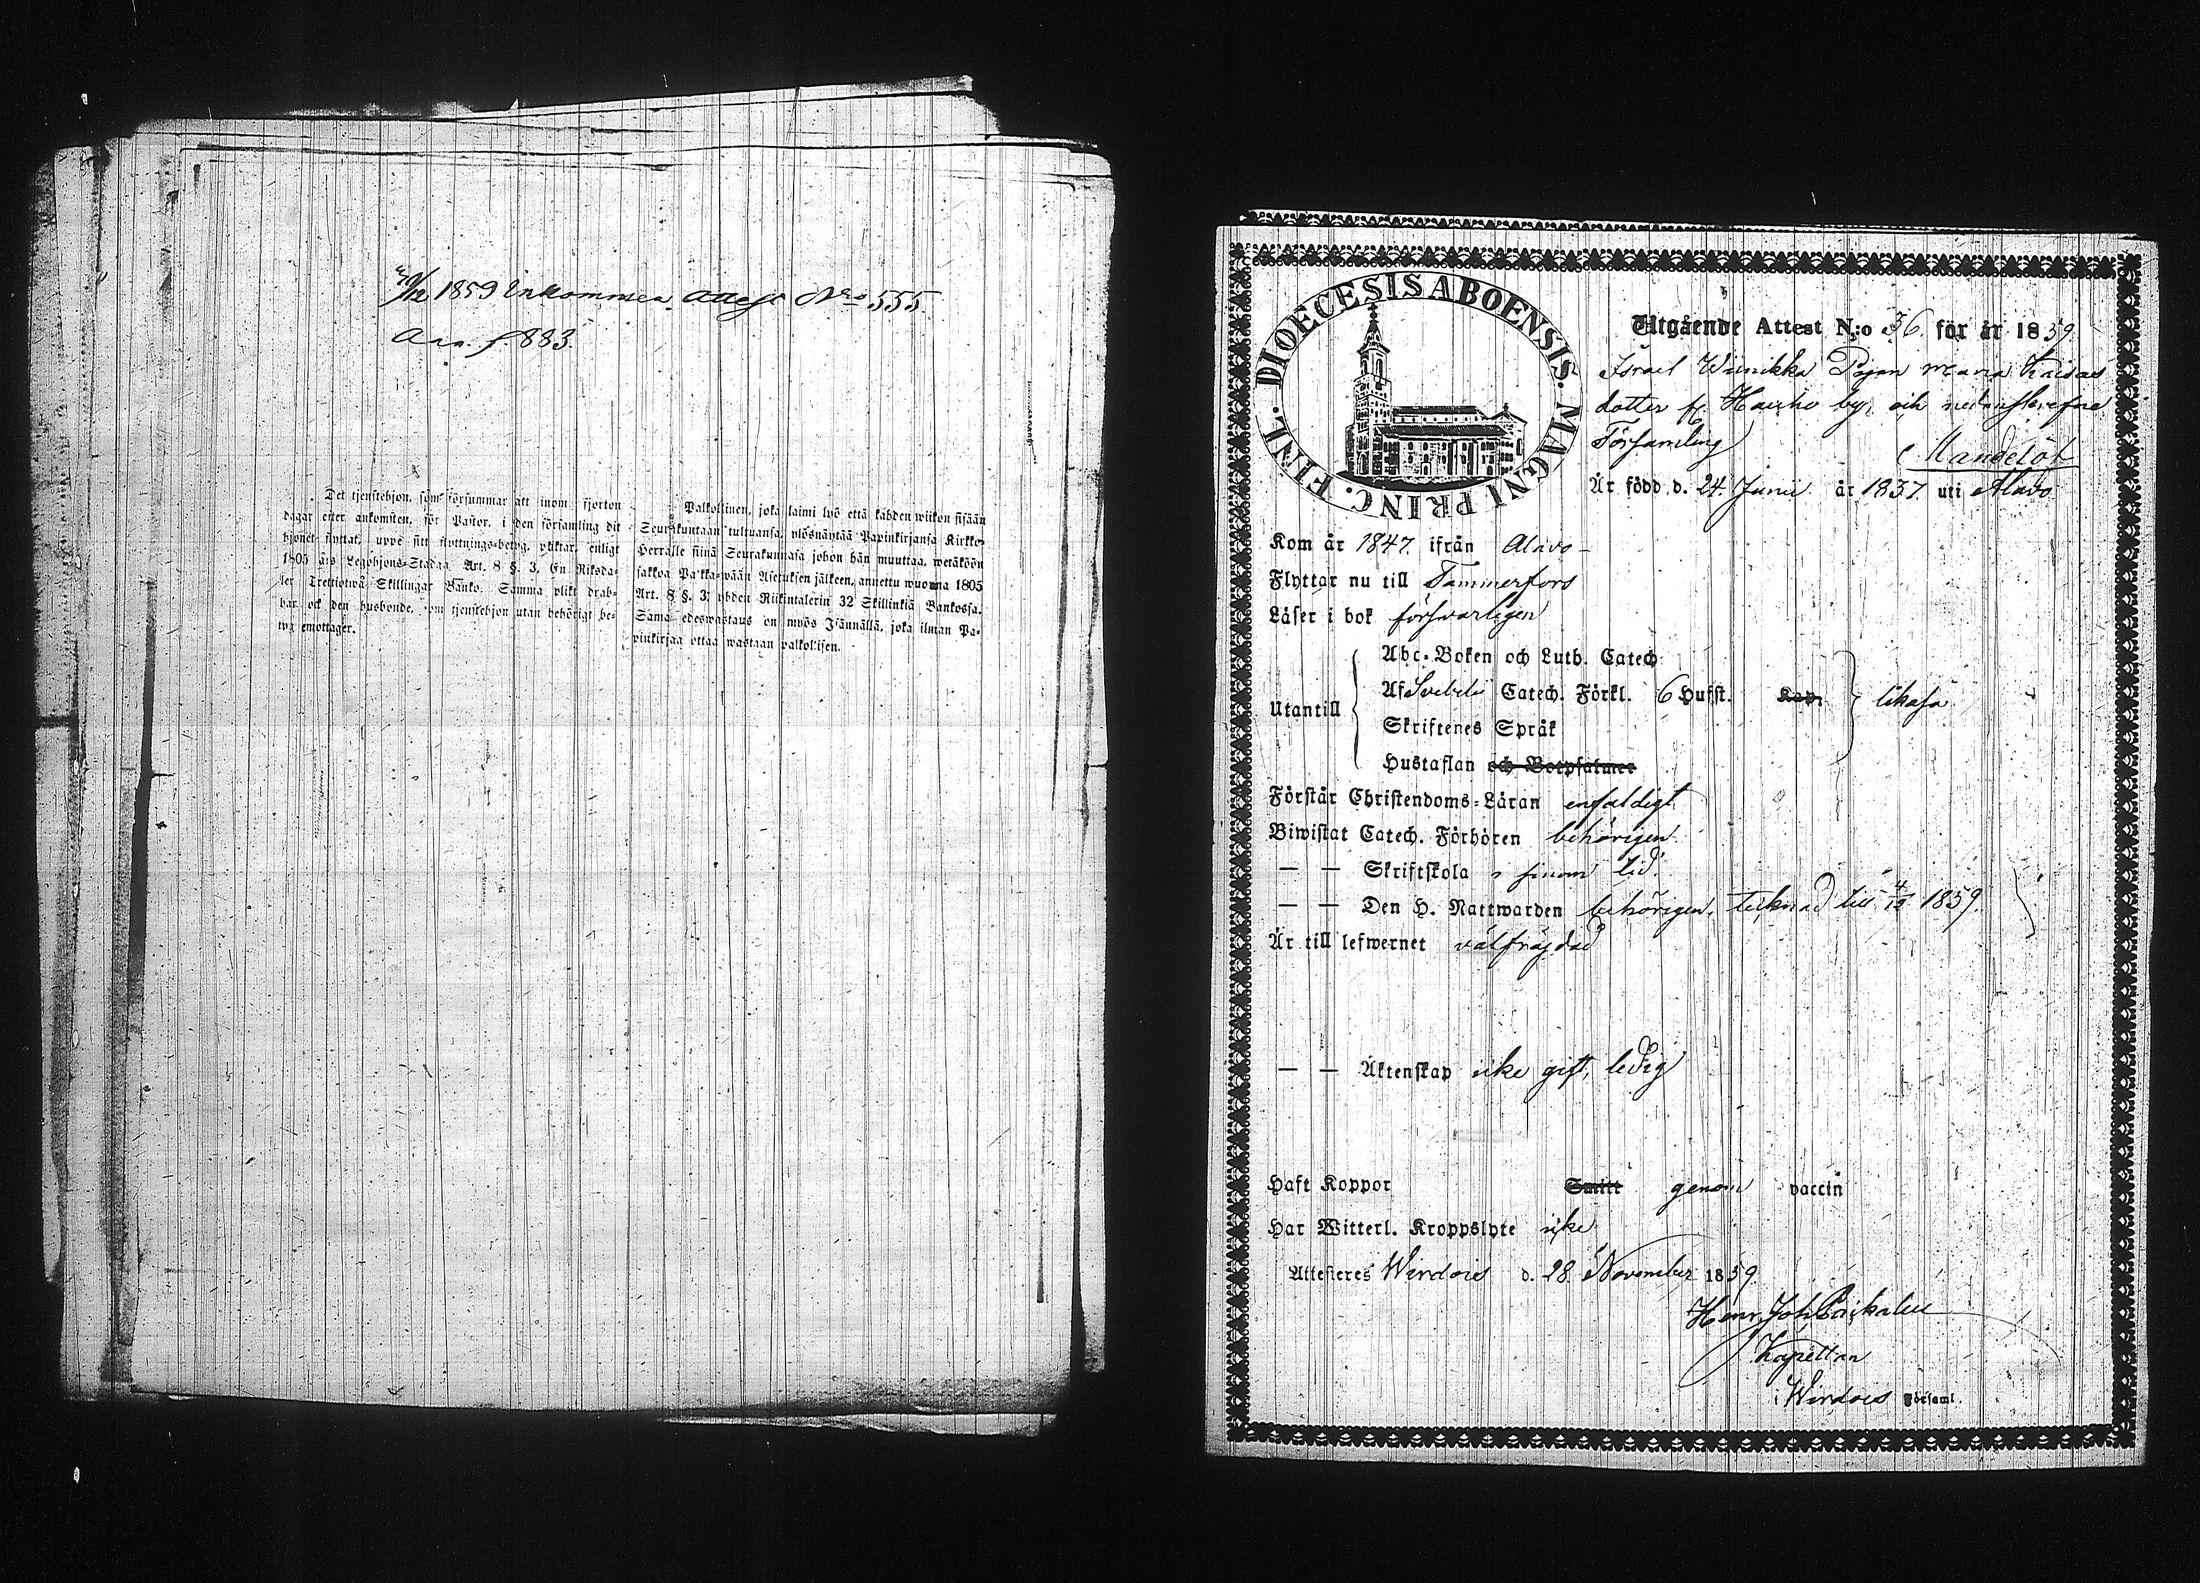 30/12 1859 Inkommen Attest Nro 555.
f. 883.
Det tjenstehjon, som försummar att inom fjorton
dagar efter ankomsten, för Pastor, i den församling dit
hjonet flyttat, uppe sitt flyttnings-betyg, pliktar, enligt
1805 års Legohjons-Stadga Art. 8 §. 3, En Riksda-
ler Trettiotwå Skillingar Banko. Samma plikt drab-
bar ock den husbonde, som tjenstehjon utan behörigt be-
tyg emottager.
Palkollinen, joka laimi lyö että kahden wiikon sisään
Seurakuntaan tultuansa, ylösnäyttää Papinkirjansa Kirkko-
Herralle siinä Seurakunnasa johon hän muuttaa, wetäköön
sakkoa Palkka-wään Asetuksen jälkeen, annettu wuonna 1805
Art. 8 §. 3, yhden Riikintalerin 32 Skillinkiä Bankossa.
Sama edeswastaus on myös Isännällä, joka ilman Pa-
pinkirjaa ottaa wastaan palkollisen.
DIOECESIS ABOENSIS. MAGNI PRINC. FINL.
Utgående Attest N:o 36 för år 1859
Israel Winikka Pigan Maria Kaisas
dotter fr Hauho by, och nedanskrefne
Församling
Är född d. 24 Junii år 1837 uti Alavo
Kom år 1847 ifrån Alavo
Flyttar nu till Tammerfors
Läser i bok försvarligen
Abc-Boken och Luth. Catech
Utantill Af Svebelii Catech. Förkl. 6 Hufst. Kap. likaså
Skriftenes Språk
Hustaflan och Botpsalmer
Förstår Christendoms-Läran enfaldigt
Biwistat Catech. Förhören behörigen
— — Skriftskola i sinom tid.
— — Den H. Nattwarden behörigen, tecknad till 4/12 1859.
Är till lefwernet välfrägdad
— — Äktenskap icke gift, ledig
Haft Koppor Smitt genom vaccin
Har Witterl. Kroppslyte icke
Attesteres Wirdois d. 28 November 1859
Henr. Joh.
Kapellan
i Wirdois Församl.